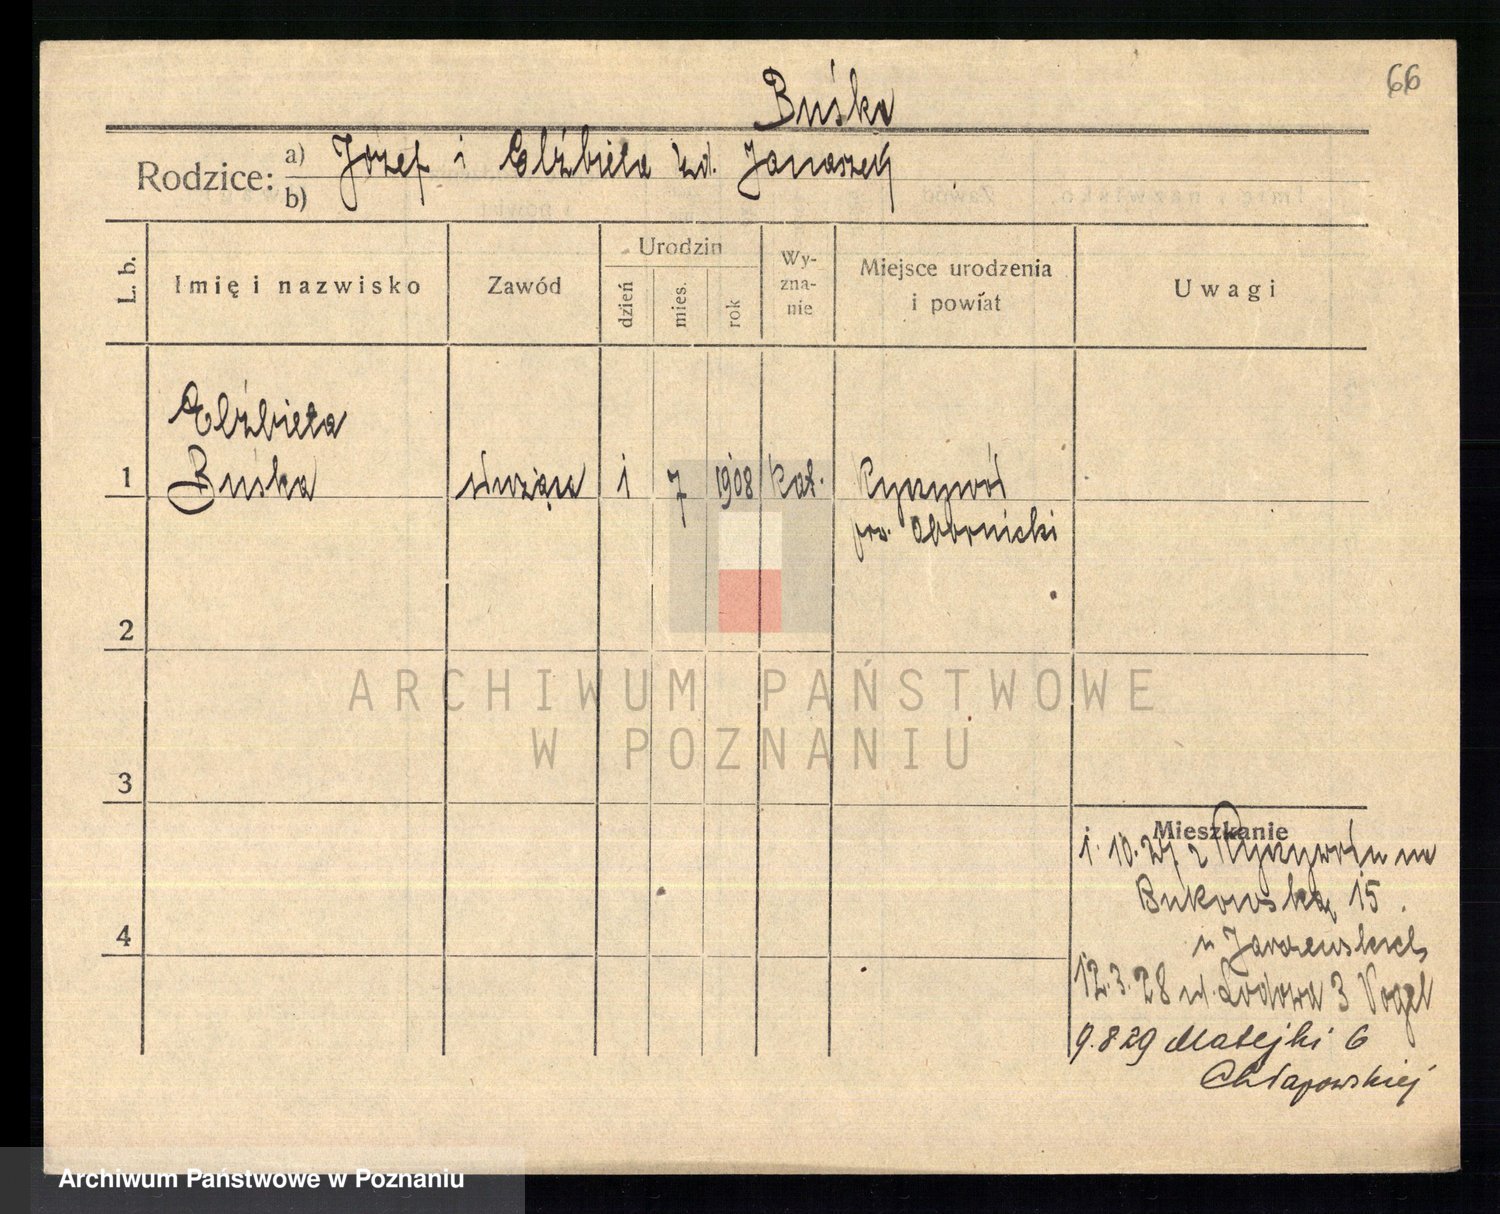 66
Buśka
Rodzice: a) Józef i Elżbieta zd. Janaszek
b)
L. b.
Imię i nazwisko
Zawód
Urodzin
dzień
mies.
rok
Wy-
zna-
nie
Miejsce urodzenia
i powiat
Uwagi
Elżbieta
1 Buśka służąca 1 7 1908 kat. Ryczywół
pow. obornicki
2
3
4
ARCHIWUM PAŃSTWOWE
W POZNANIU
Mieszkanie
1.10.27 z Ryczywołu na
Bukowską 15.
u Jaraczewskich
12.3.28 ul. Lodowa 3 Vogel
9.8 29 Matejki 6
Chłapowskiej
Archiwum Państwowe w Poznaniu